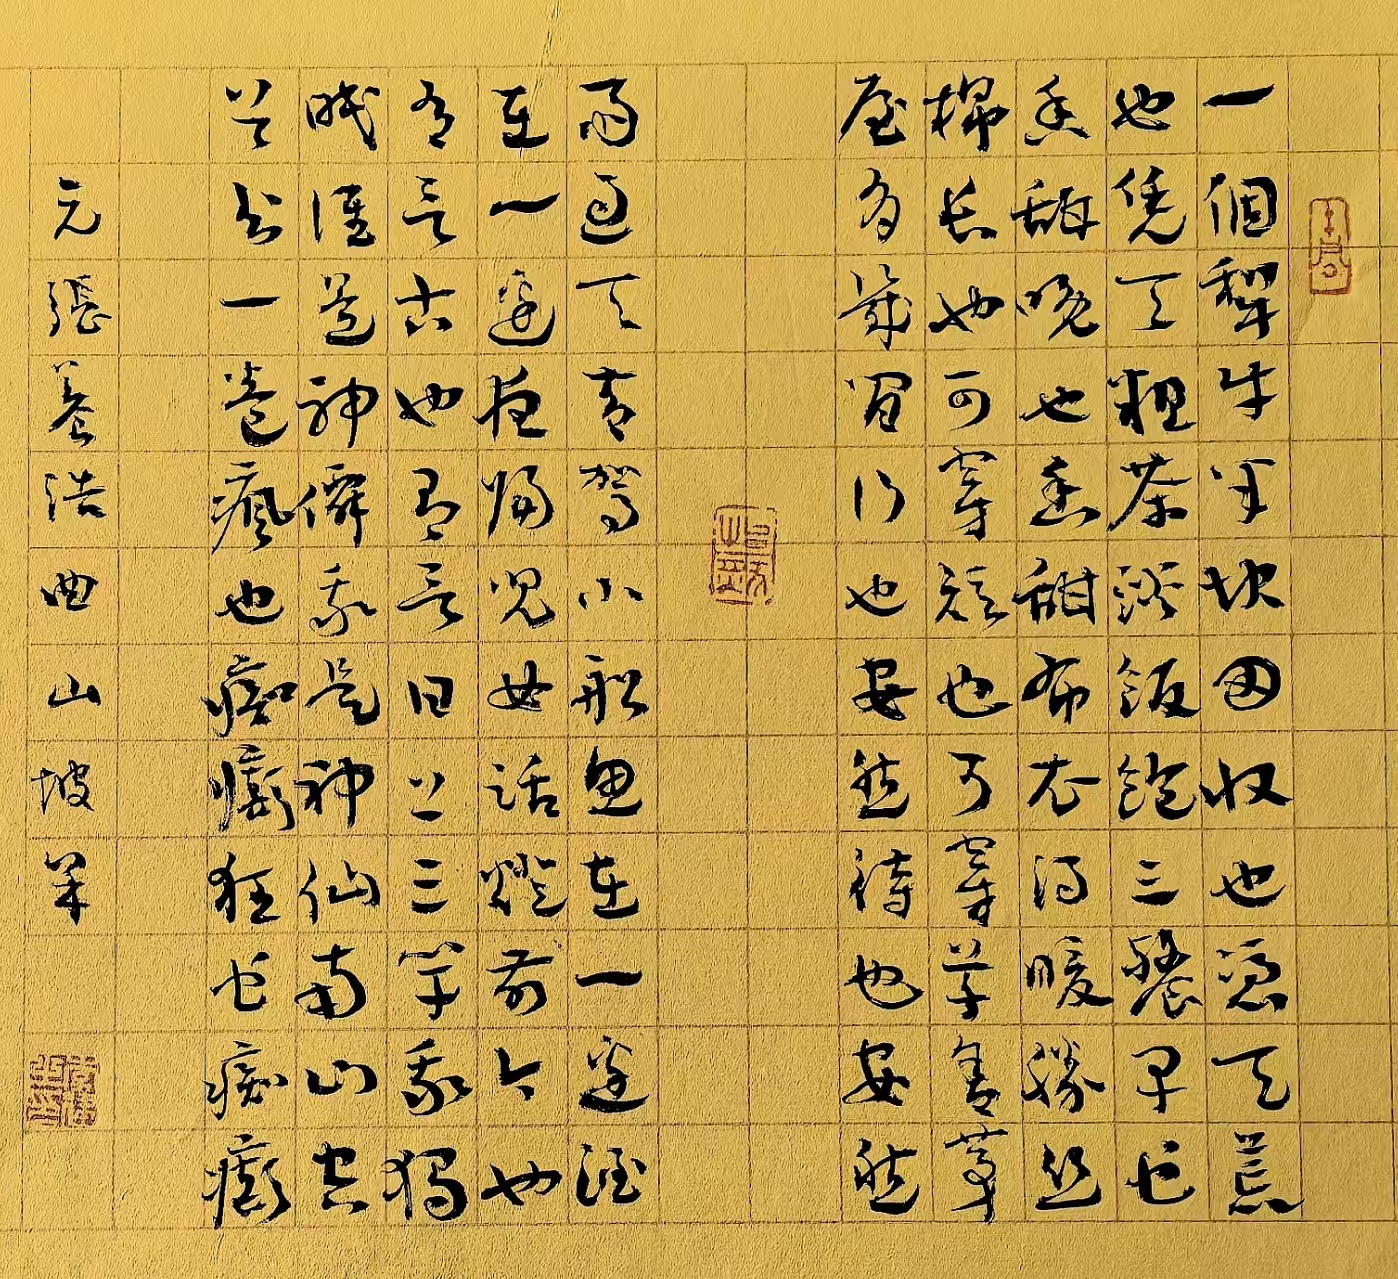 一個犁牛半块田收也憑天荒
也凭天粗茶淡飯飽三餐早也
香甜晚也香甜布衣得暖勝丝
棉长也可穿短也可穿草舍茅
屋有幾間行也安然待也安然
雨過天青驾小船鱼在一邊酒
在一邊夜歸兒女話燈前今也
有言古也有言日上三竿我獨
眠誰是神僊我是神仙南山空
谷书一卷瘋也痴癲狂也痴癲
元張養浩曲山坡羊